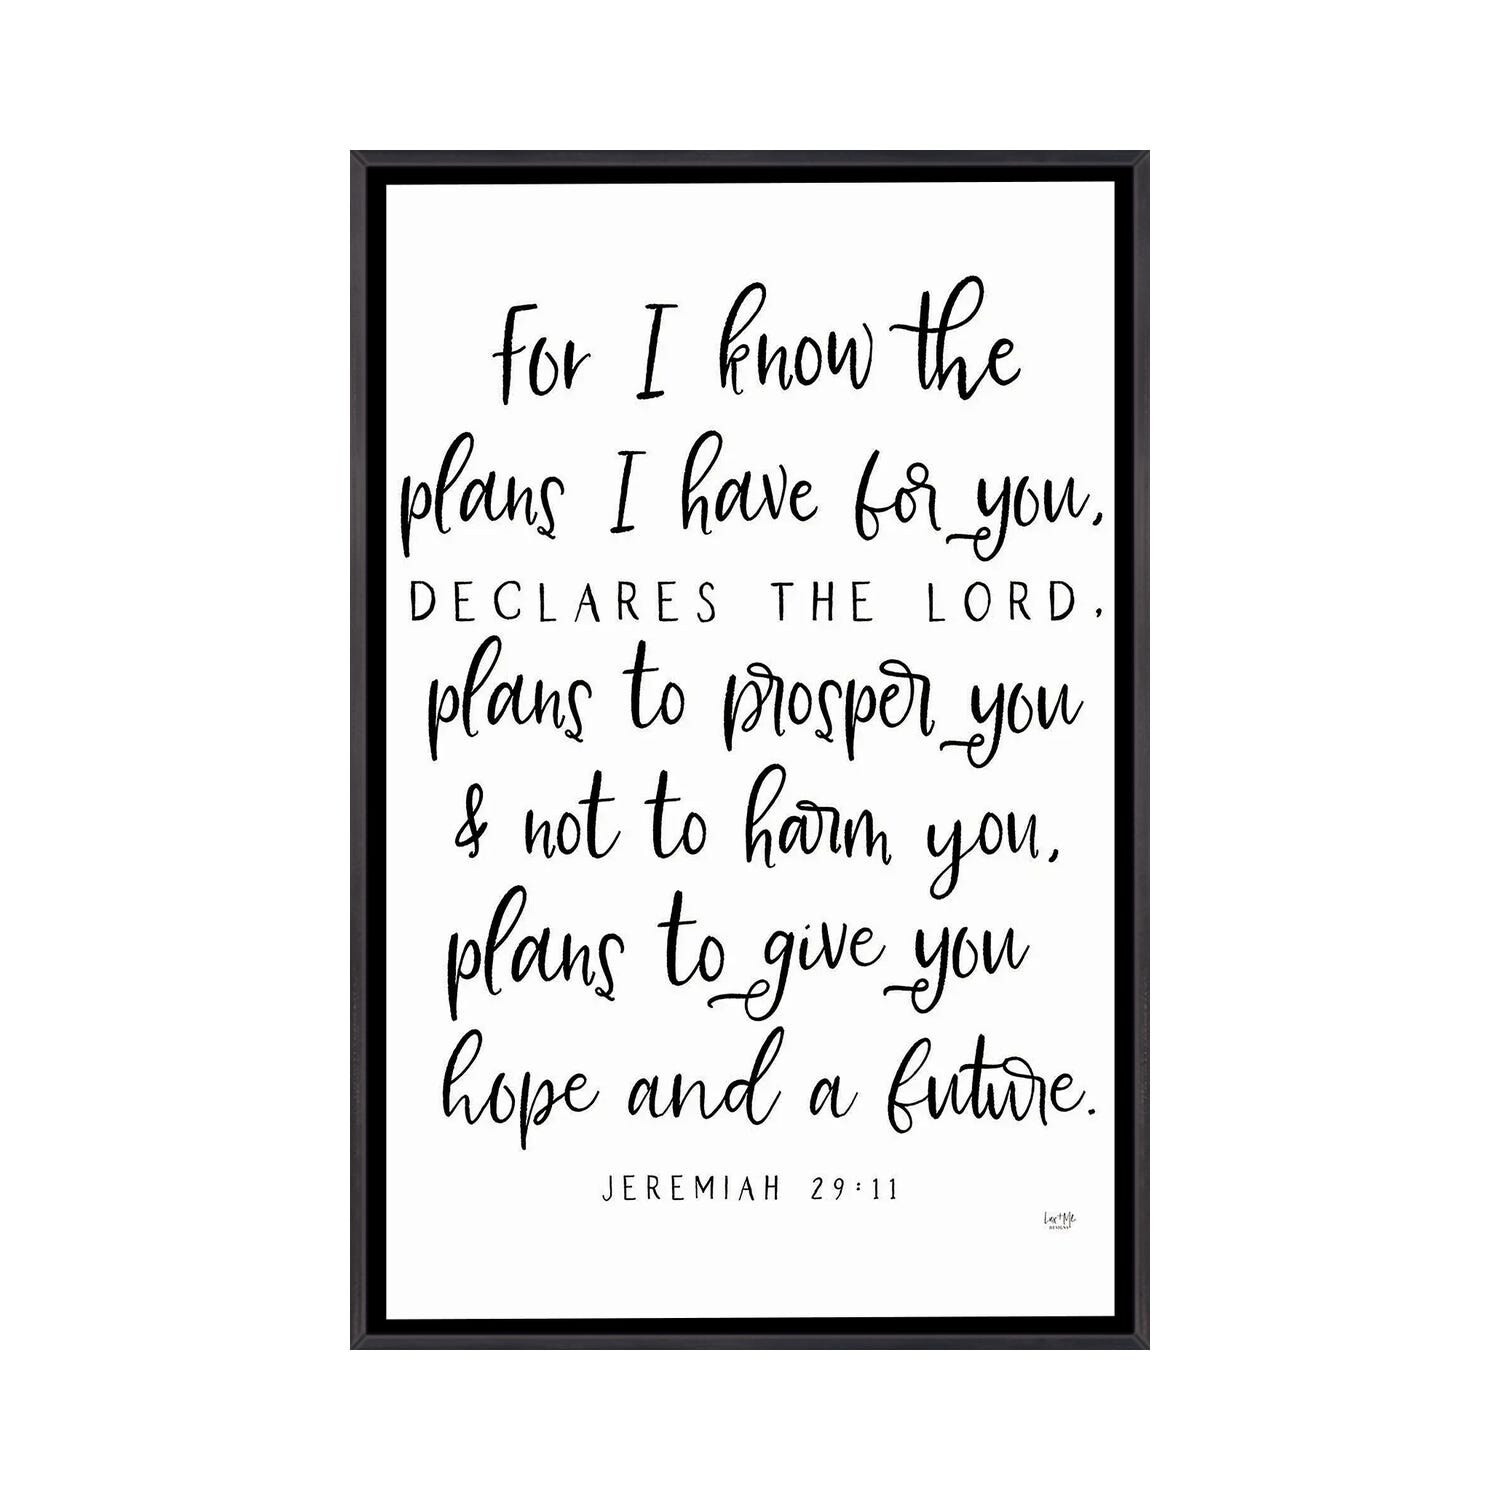 For I know the
plans I have for you,
DECLARES THE LORD,
plans to prosper you
& not to harm you,
plans to give you
hope and a future.
JEREMIAH 29:11
Lux + Me
DESIGNS